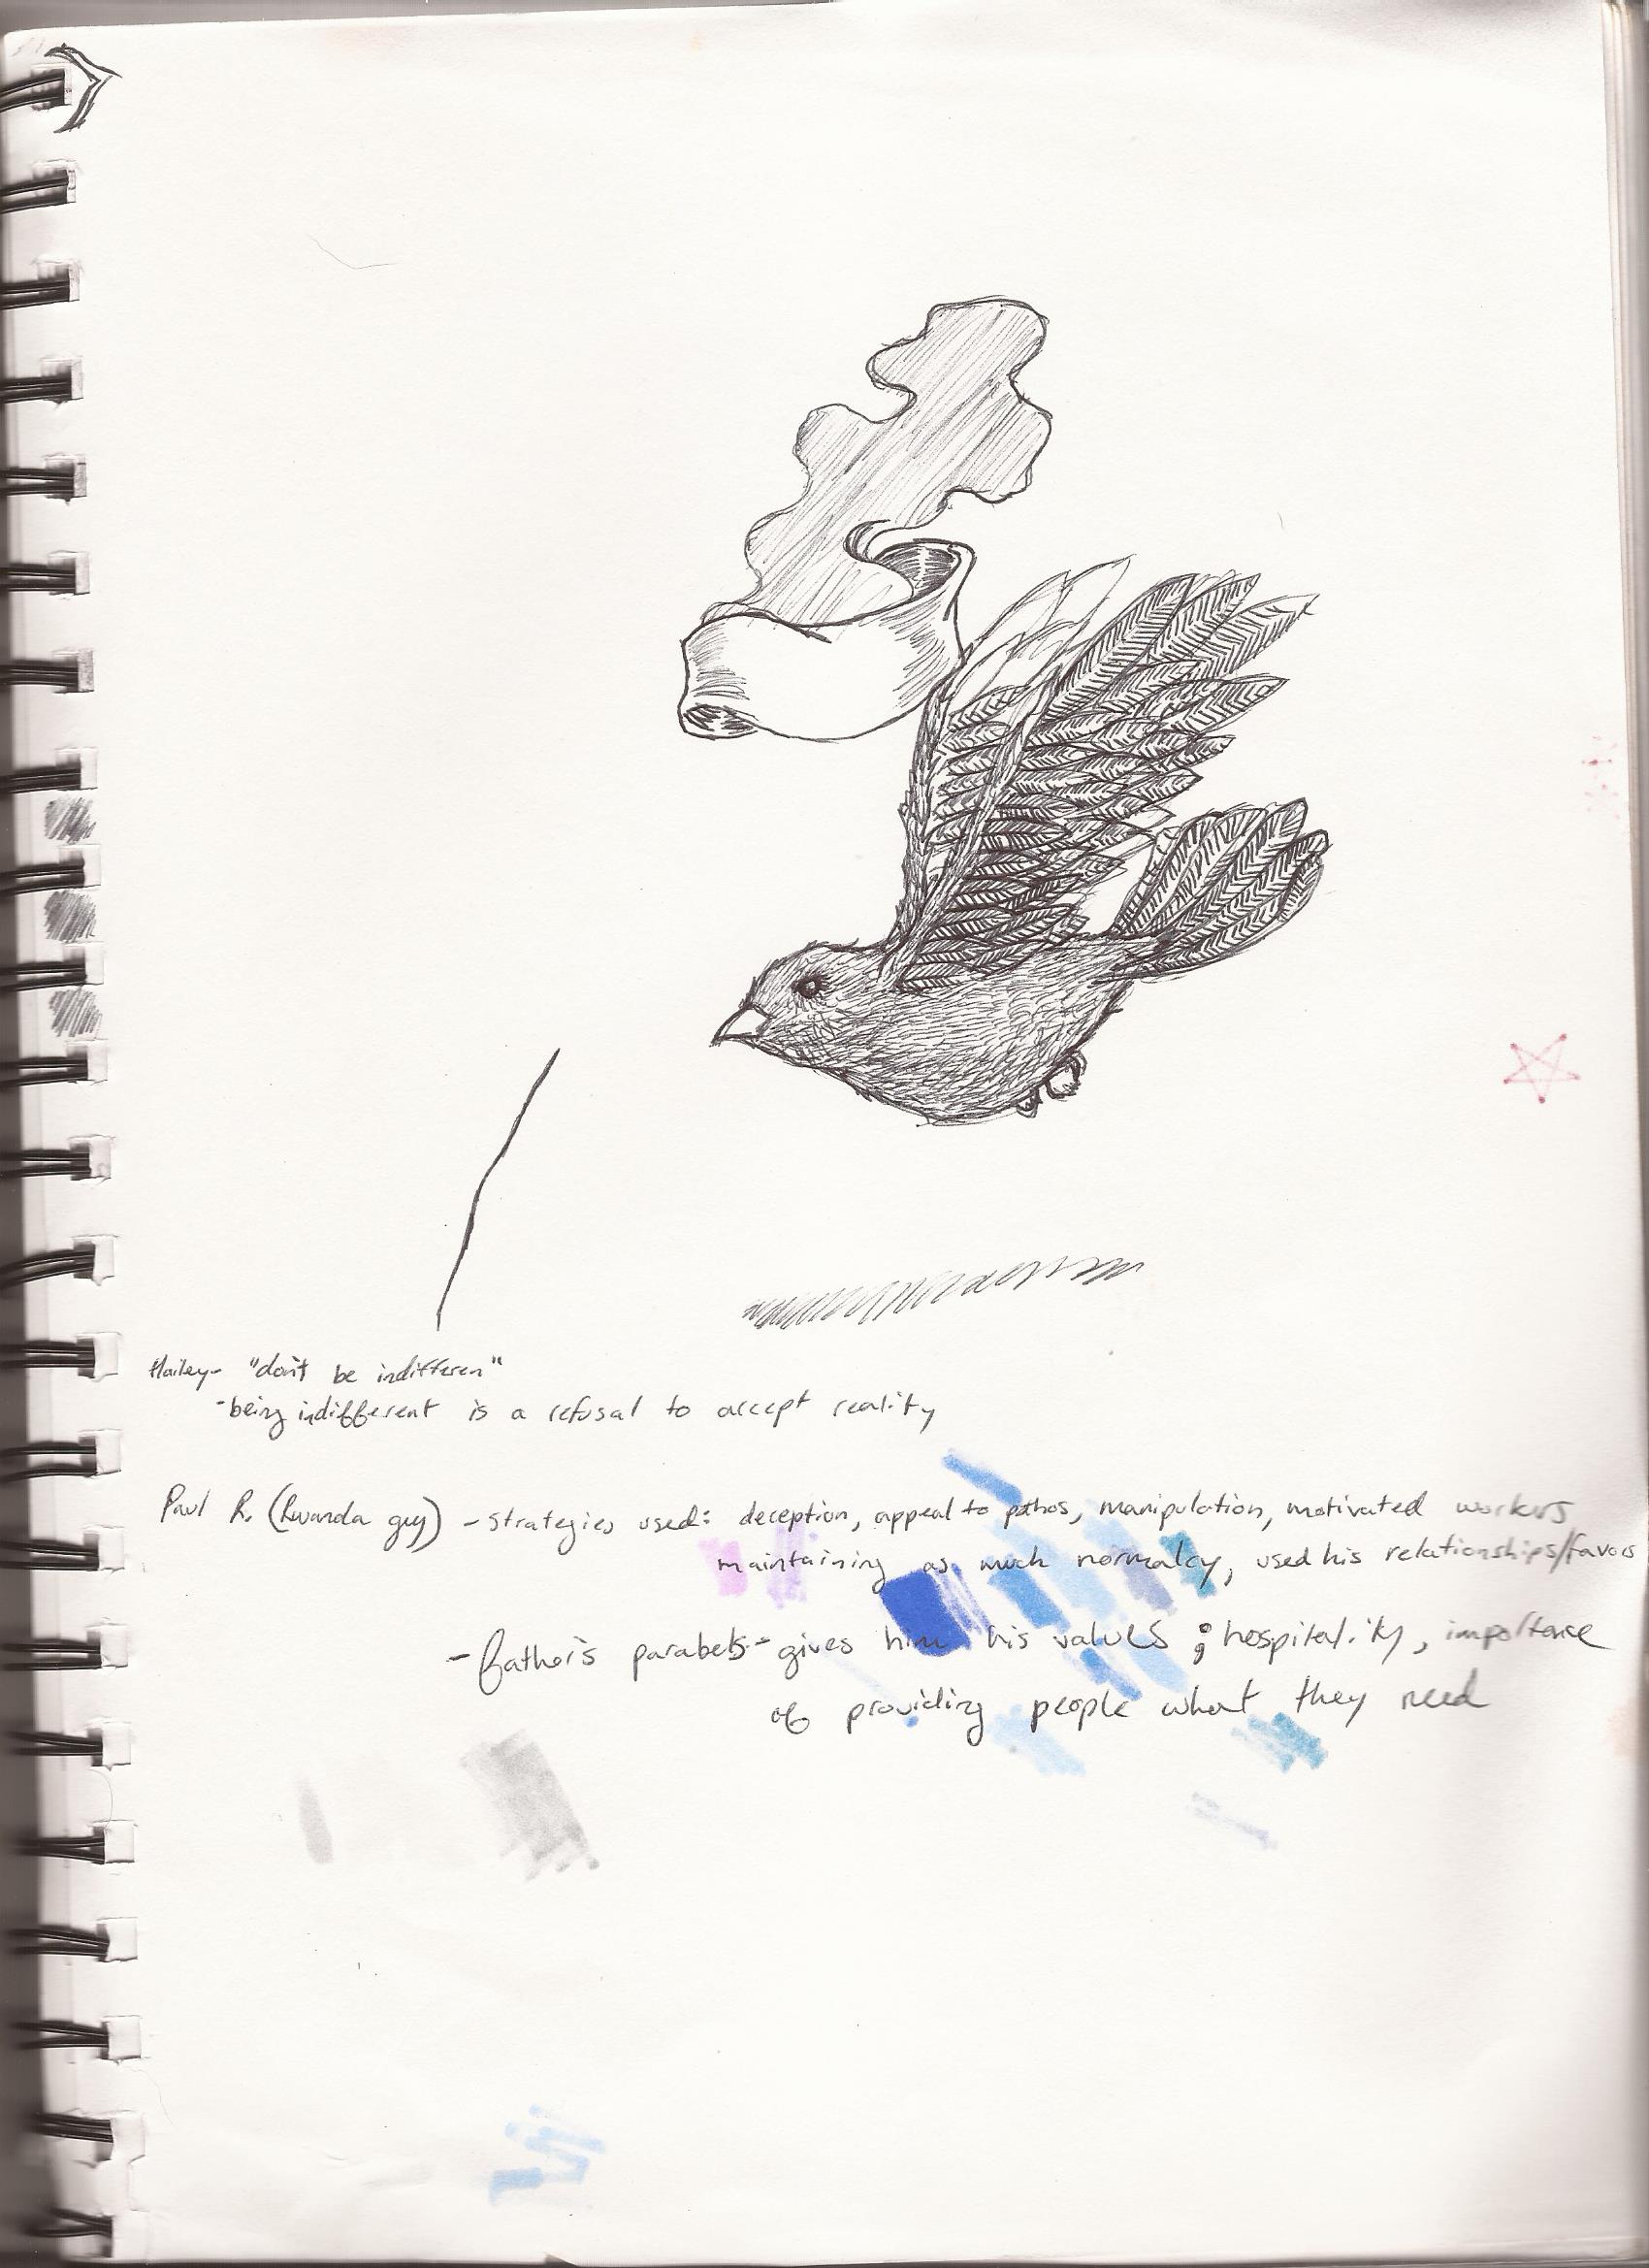 Hailey- "don't be indifferen"
-being indifferent is a refusal to accept reality
Paul R. (Rwanda guy) - strategies used: deception, appeal to pathos, manipulation, motivated workers
maintaining as much normalcy, used his relationships/favors
- father's parabels - gives him his values ; hospitality, importance
of providing people what they need